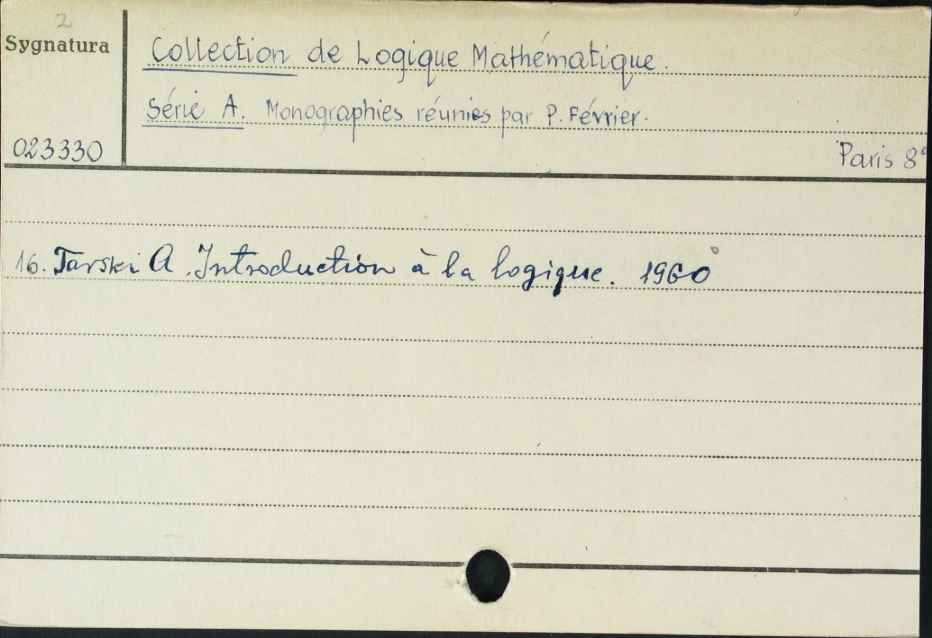 2
Sygnatura
Collection de Logique Mathématique.
Série A. Monographies réunies par P. Février.
023330
Paris 8°
16. Tarski A. Introduction à la logique. 1960